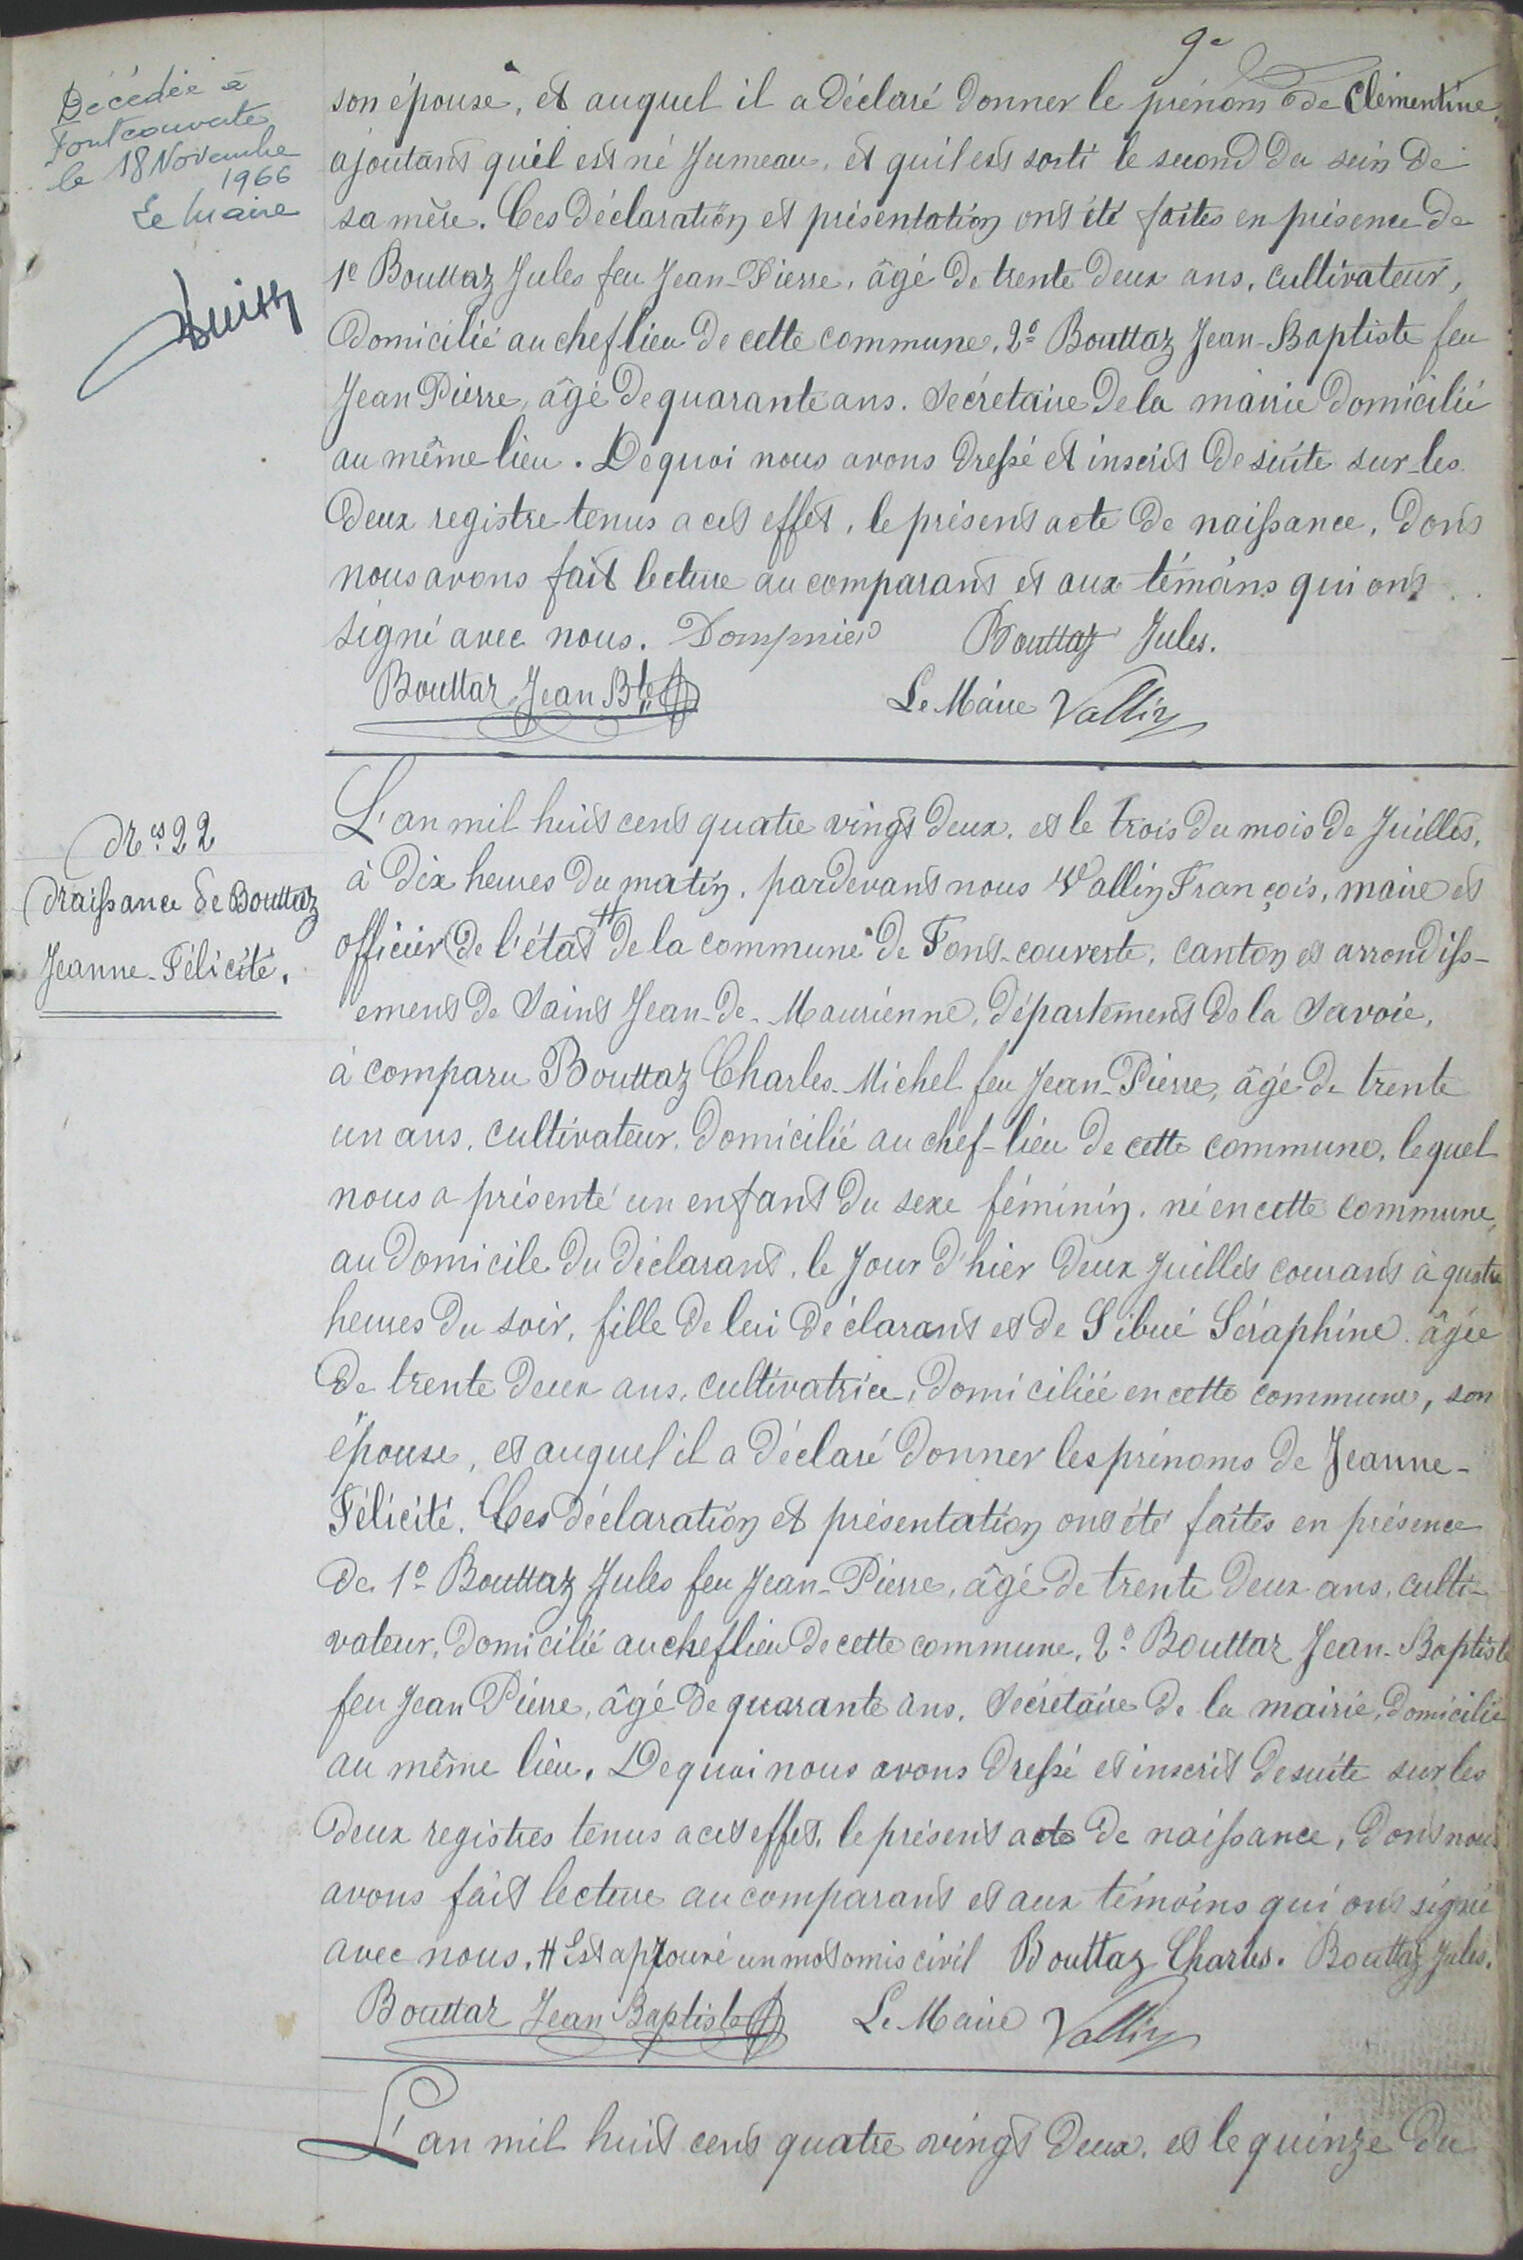 9e
Décédée à
Fontcouverte
le 18 Novembre
1966
Le Maire
son épouse, et auquel il a déclaré donner le prénom de Clémentine,
ajoutant qu'il est né Jumeau, et qu'il est sorti le second du sein de
sa mère. Ces déclaration et présentation ont été faites en présence de
1º Bouttaz Jules feu Jean-Pierre, âgé de trente deux ans, cultivateur,
domicilié au chef lieu de cette commune, 2º Bouttaz Jean-Baptiste feu
Jean Pierre, âgé de quarante ans. Secrétaire de la mairie domicilié
au même lieu. De quoi nous avons dressé et inscrit de suite sur les
deux registre tenus a cet effet, le présent acte de naissance, dont
nous avons fait lecture au comparant et aux témoins qui ont
signé avec nous. Dompnier Bouttaz Jules.
Bouttaz Jean Bte Le Maire Vallin
Nos 22
Naissance de Bouttaz
Jeanne-Félicité.
L'an mil huit cent quatre vingt deux, et le trois du mois de Juillet,
à dix heures du matin, pardevant nous Vallin François, maire et
officier de l'état # de la commune de Font-couverte, canton et arrondiss-
ement de Saint Jean-de-Maurienne, département de la Savoie,
à comparu Bouttaz Charles-Michel feu Jean-Pierre, âgé de trente
un ans, cultivateur, domicilié au chef-lieu de cette commune, lequel
nous a présenté un enfant du sexe féminin, né en cette commune,
au domicile du déclarant, le jour d'hier deux juillet courant à quatre
heures du soir, fille de lui déclarant et de Sibué Séraphine âgée
de trente deux ans, cultivatrice, domiciliée en cette commune, son
épouse, et auquel il a déclaré donner les prénoms de Jeanne-
Félicité. Ces déclaration et présentation ont été faites en présence
de 1º Bouttaz Jules feu Jean-Pierre, âgé de trente deux ans, culti-
vateur, domicilié au chef lieu de cette commune, 2º Bouttaz Jean-Baptiste
feu Jean Pierre, âgé de quarante ans, Secrétaire de la mairie, domicilié
au même lieu. De quoi nous avons dressé et inscrit de suite sur les
deux registres tenus a cet effet, le présent acte de naissance, dont nous
avons fait lecture au comparant et aux témoins qui ont signé
avec nous. # Est approuvé un mot omis civil Bouttaz Charles. Bouttaz Jules.
Bouttaz Jean Baptiste Le Maire Vallin
L'an mil huit cent quatre vingt deux, et le quinze du